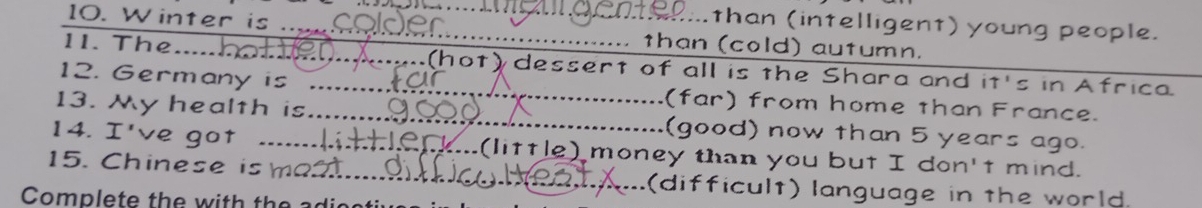 intelligenter than (intelligent) young people.
10. Winter is colder than (cold) autumn.
11. The hotter (hot) dessert of all is the Shara and it's in Africa.
12. Germany is far (far) from home than France.
13. My health is good (good) now than 5 years ago.
14. I've got littler (little) money than you but I don't mind.
15. Chinese is most difficulteat (difficult) language in the world.
Complete the with the adjectives in